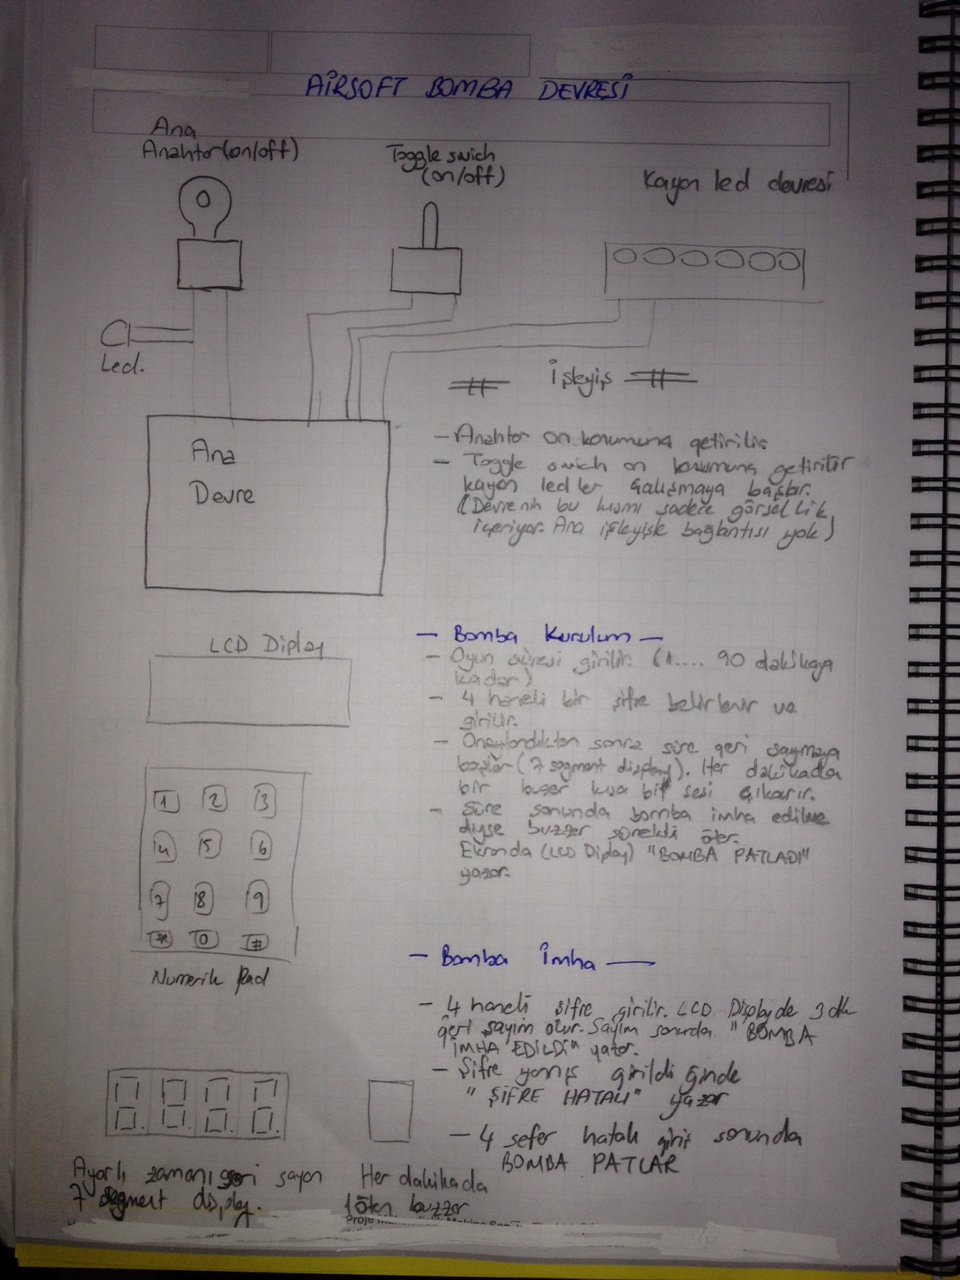 AİRSOFT BOMBA DEVRESİ
Ana
Anahtar(on/off)
Toggle swich
(on/off)
Kayan led devresi
Led.
Ana
Devre
İşleyiş
- Anahtar on konumuna getirilir
- Toggle swich on konumuna getirilir
kayan ledler çalışmaya başlar.
(Devrenin bu kısmı sadece görsellik
içeriyor. Ana işleyişle bağlantısı yok)
LCD Diplay
- Bomba Kurulum -
- Oyun süresi girilir. (1.... 90 dakikaya
kadar)
- 4 haneli bir şifre belirlenir ve
girilir.
- Onaylandıktan sonra süre geri saymaya
başlar (7 segment display). Her dakikada
bir buzer kısa bir sesi çıkarır.
- Süre sonunda bomba imha edilme
diyse buzzer sürekli öter.
Ekranda (LCD Diplay) "BOMBA PATLADI"
yazar.
1 2 3
4 5 6
7 8 9
* 0 #
Numerik Pad
- Bomba İmha -
- 4 haneli şifre girilir. LCD Displayde 3 dk
geri sayım olur. Sayım sonunda "BOMBA
İMHA EDİLDİ" yazar.
- Şifre yanlış girildiğinde
"ŞİFRE HATALI" yazar
- 4 sefer hatalı giriş sonunda
BOMBA PATLAR
8. 8. 8. 8.
Ayarlı zamanı geri sayan
7 segment display.
Her dakikada
1 öten buzzer
Proje